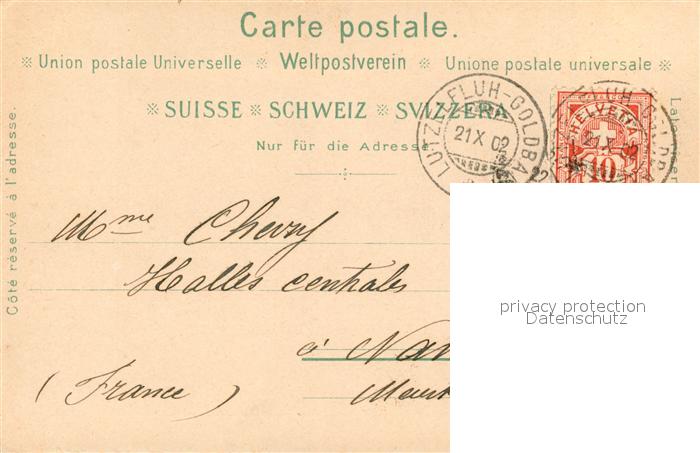 Carte postale.
※ Union postale Universelle ※ Weltpostverein ※ Unione postale universale ※
※ SUISSE ※ SCHWEIZ ※ SVIZZERA
Nur für die Adresse
LUTZELFLUH-GOLDBA
21 X 02
HELVETIA
10
Côté réservé à l'adresse.
Mme Chevry
Halles centrales
à Nan
Meurt
(France)
privacy protection
Datenschutz